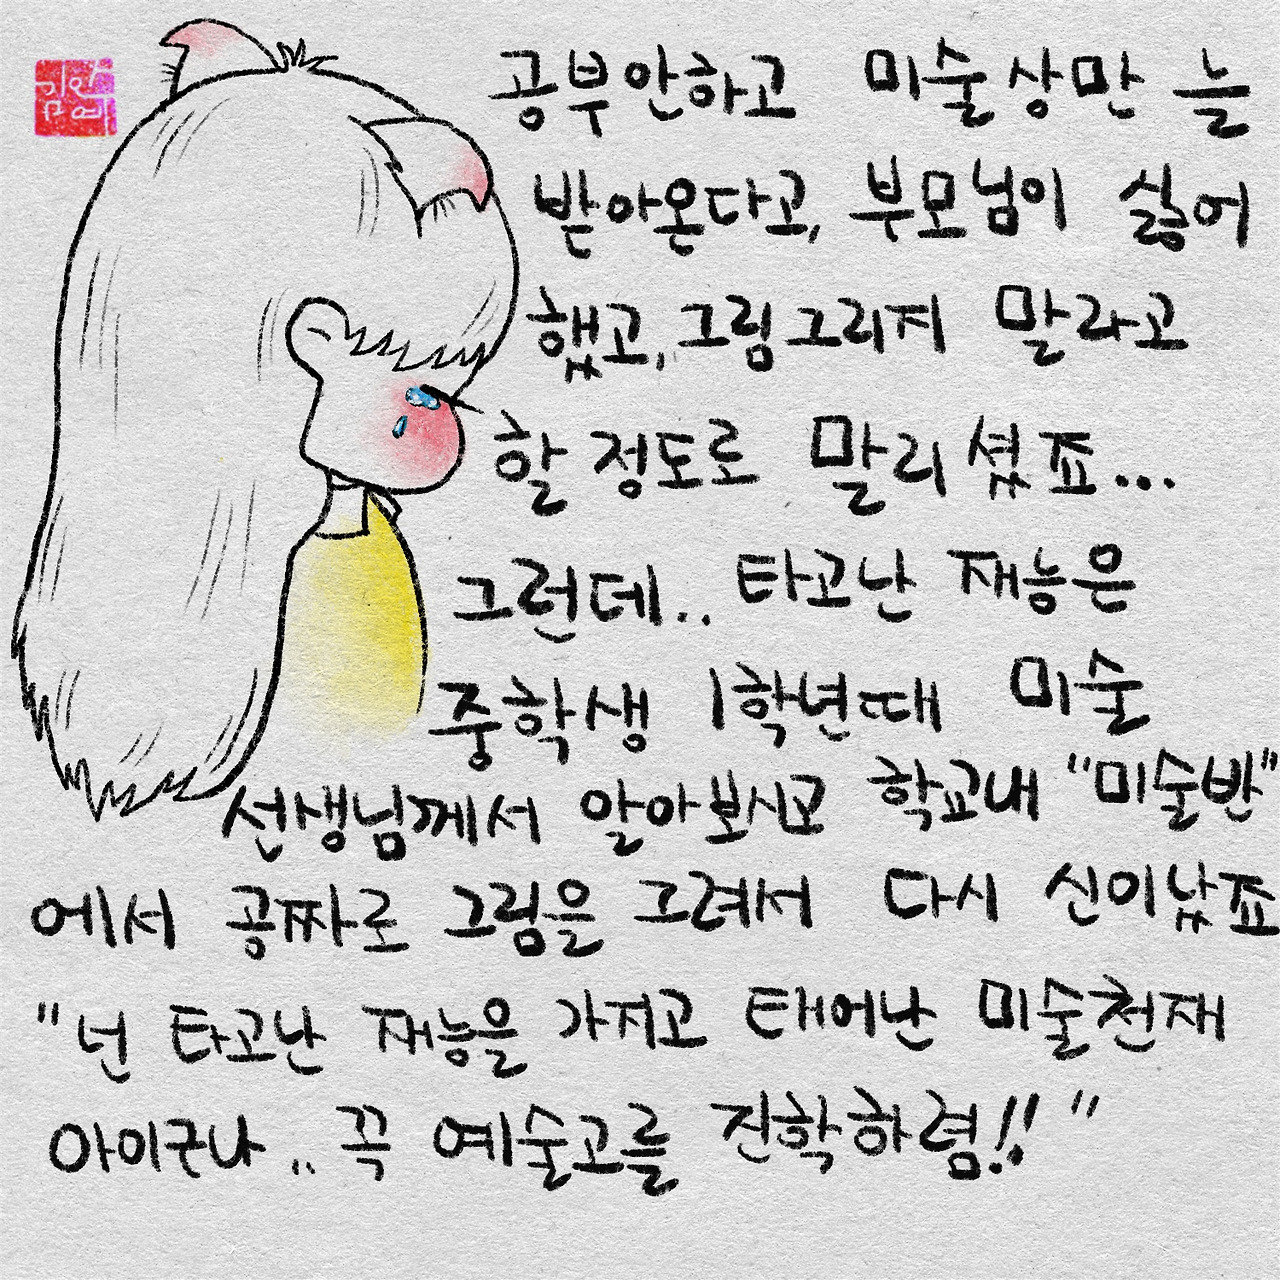 공부안하고 미술상만 늘
받아온다고, 부모님이 싫어
했고, 그림그리지 말라고
할정도로 말리셨죠...
그런데.. 타고난 재능은
중학생 1학년때 미술
선생님께서 알아보시고 학교내 "미술반"
에서 공짜로 그림을 그려서 다시 신이났죠
"넌 타고난 재능을 가지고 태어난 미술천재
아이구나.. 꼭 예술고를 진학하렴!!"